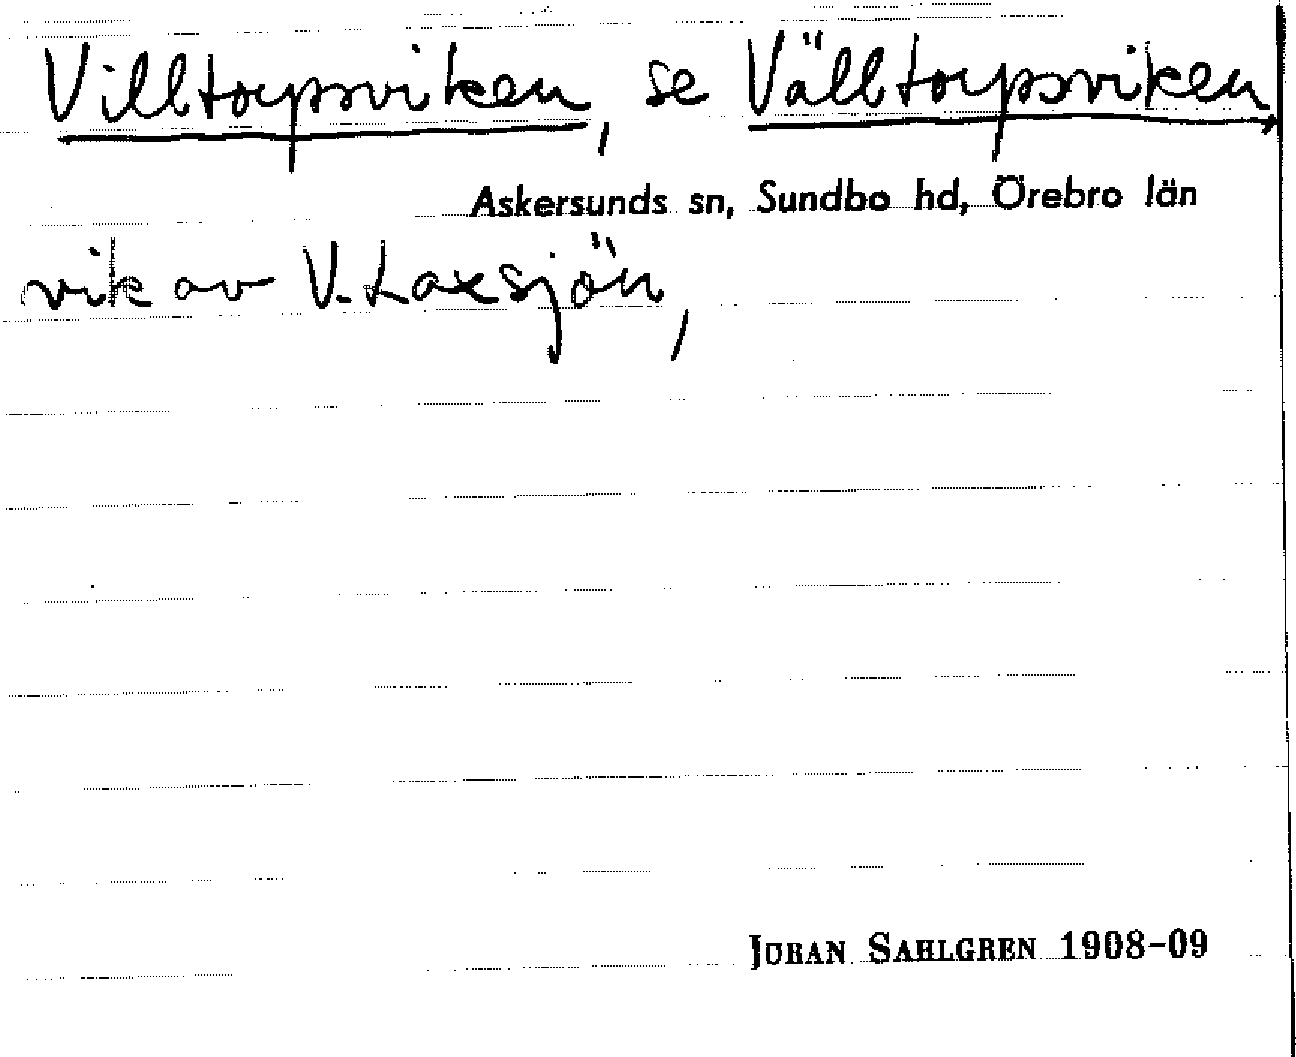 Villtorpsviken, se Välltorpsviken
Askersunds sn, Sundbo hd, Örebro län
vik av V. Laxsjön,
JOHAN SAHLGREN 1908-09